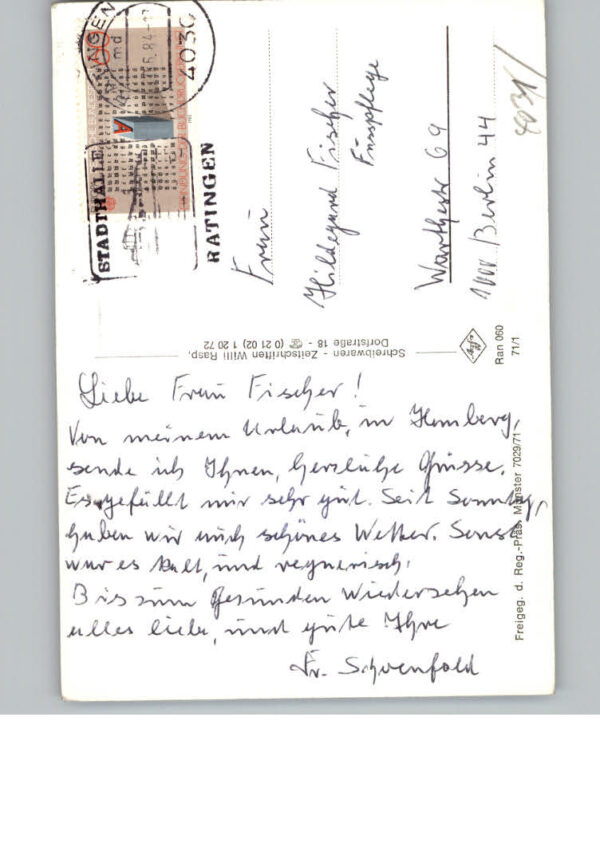 Liebe Frau Fischer!
Von meinem Urlaub, in Homberg,
sende ich Ihnen, herzliche Grüsse.
Es gefällt mir sehr gut. Seit Sonntag,
haben wir auch schönes Wetter. Sonst
war es kalt, und regnerisch.
Bis zum gesunden Wiedersehen
alles liebe, und gute Ihre
Fr. Schoenfeld
Frau
Hildegard Fischer
Fusspflege
Warthestr 69
1000 Berlin 44
4031/
STADTHALLE
RATINGEN
4030
Schreibwaren - Zeitschriften Willi Rasp,
Dorfstraße 18 - ☎ (0 21 02) 1 20 72
Ran 060
71/1
Freigeg. d. Reg.-Präs. Münster 7029/71